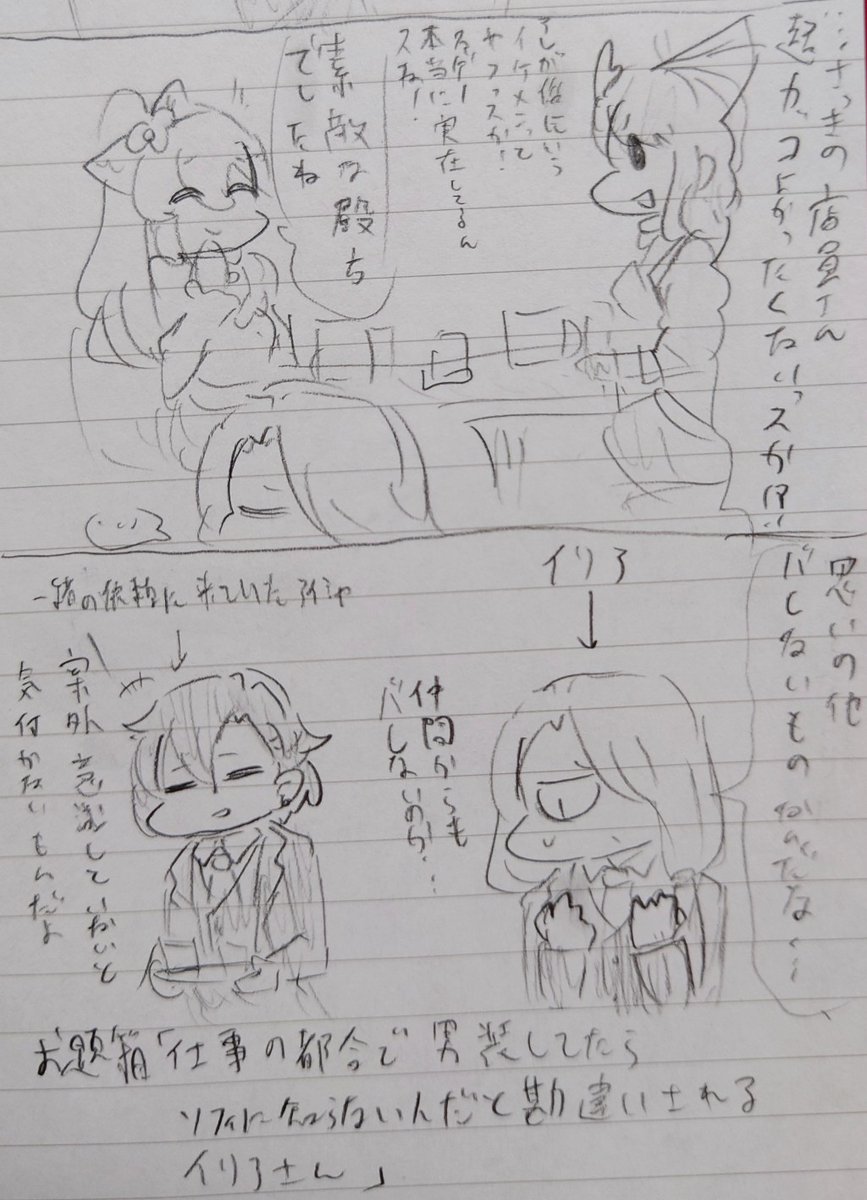 …さっきの店員さん
超カッコよかったくないっスか!?
これが俗にいう
イケメンって
やつっスか!
スゲー
本当に実在してるん
スね!
素敵な殿方
でしたね
思いの他
バレないものなんだな…
イリス
↓
仲間からも
バレないのか…
一緒の依頼に来ていたアイシャ
↓
案外意識していないと
気付かないもんだよ
お題箱「仕事の都合で男装してたら
ソフィに知らないんだと勘違いされる
イリスさん」